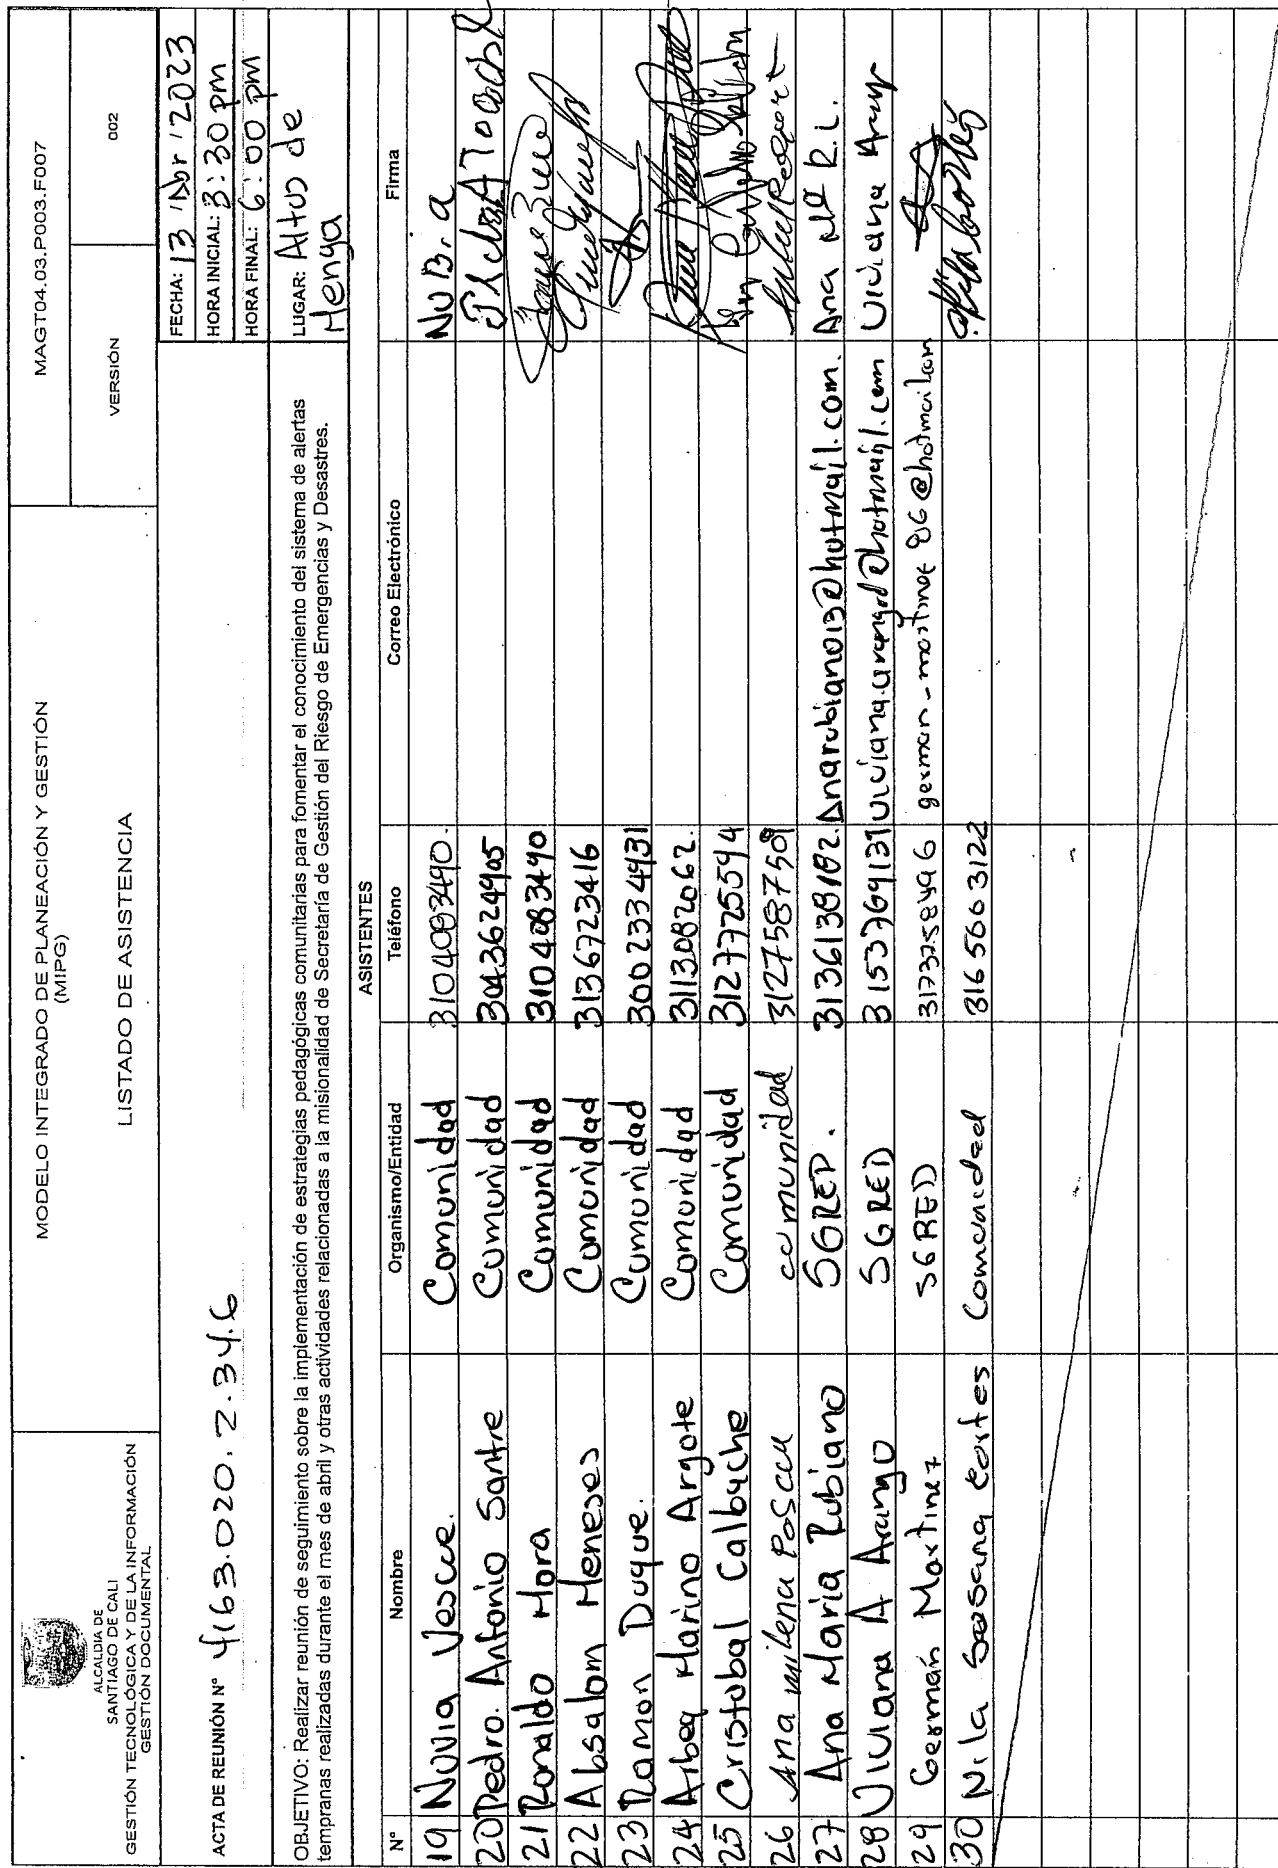 ALCALDÍA DE
SANTIAGO DE CALI
GESTIÓN TECNOLÓGICA Y DE LA INFORMACIÓN
GESTIÓN DOCUMENTAL
MODELO INTEGRADO DE PLANEACIÓN Y GESTIÓN
(MIPG)
LISTADO DE ASISTENCIA
MAGT04.03.P003.F007
VERSIÓN
002
ACTA DE REUNIÓN N° 4163.020.2.34.6
FECHA: 13 Abr 2023
HORA INICIAL: 3:30 pm
HORA FINAL: 6:00 pm
LUGAR: Altos de
Menga
OBJETIVO: Realizar reunión de seguimiento sobre la implementación de estrategias pedagógicas comunitarias para fomentar el conocimiento del sistema de alertas
tempranas realizadas durante el mes de abril y otras actividades relacionadas a la misionalidad de Secretaría de Gestión del Riesgo de Emergencias y Desastres.
ASISTENTES
N° Nombre Organismo/Entidad Teléfono Correo Electrónico Firma
19 Nuvia Vescue. Comunidad 3104083490. NuBia
20 Pedro. Antonio Santre Comunidad 3043624905
21 Ronaldo Mora Comunidad 3104083490
22 Absalom Meneses Comunidad 3136723416
23 Ramon Duque. Comunidad 3002334931
24 Arbey Marino Argote Comunidad 3113082062.
25 Cristobal Calbache Comunidad 3127725594
26 Ana milena Poscu comunidad 3127587509
27 Ana Maria Rubiano SGRED. 3136138182. Anarubiano13@hotmail.com. Ana Mª R.L.
28 Viviana A Arango SGRED 3153769131 viviana.arango@hotmail.com Viviana Arango
29 Germán Martinez SGRED 3173758496 german-martinez86@hotmail.com
30 Nila Sosana Cortes Comunidad 3165663122 Nila Cortes